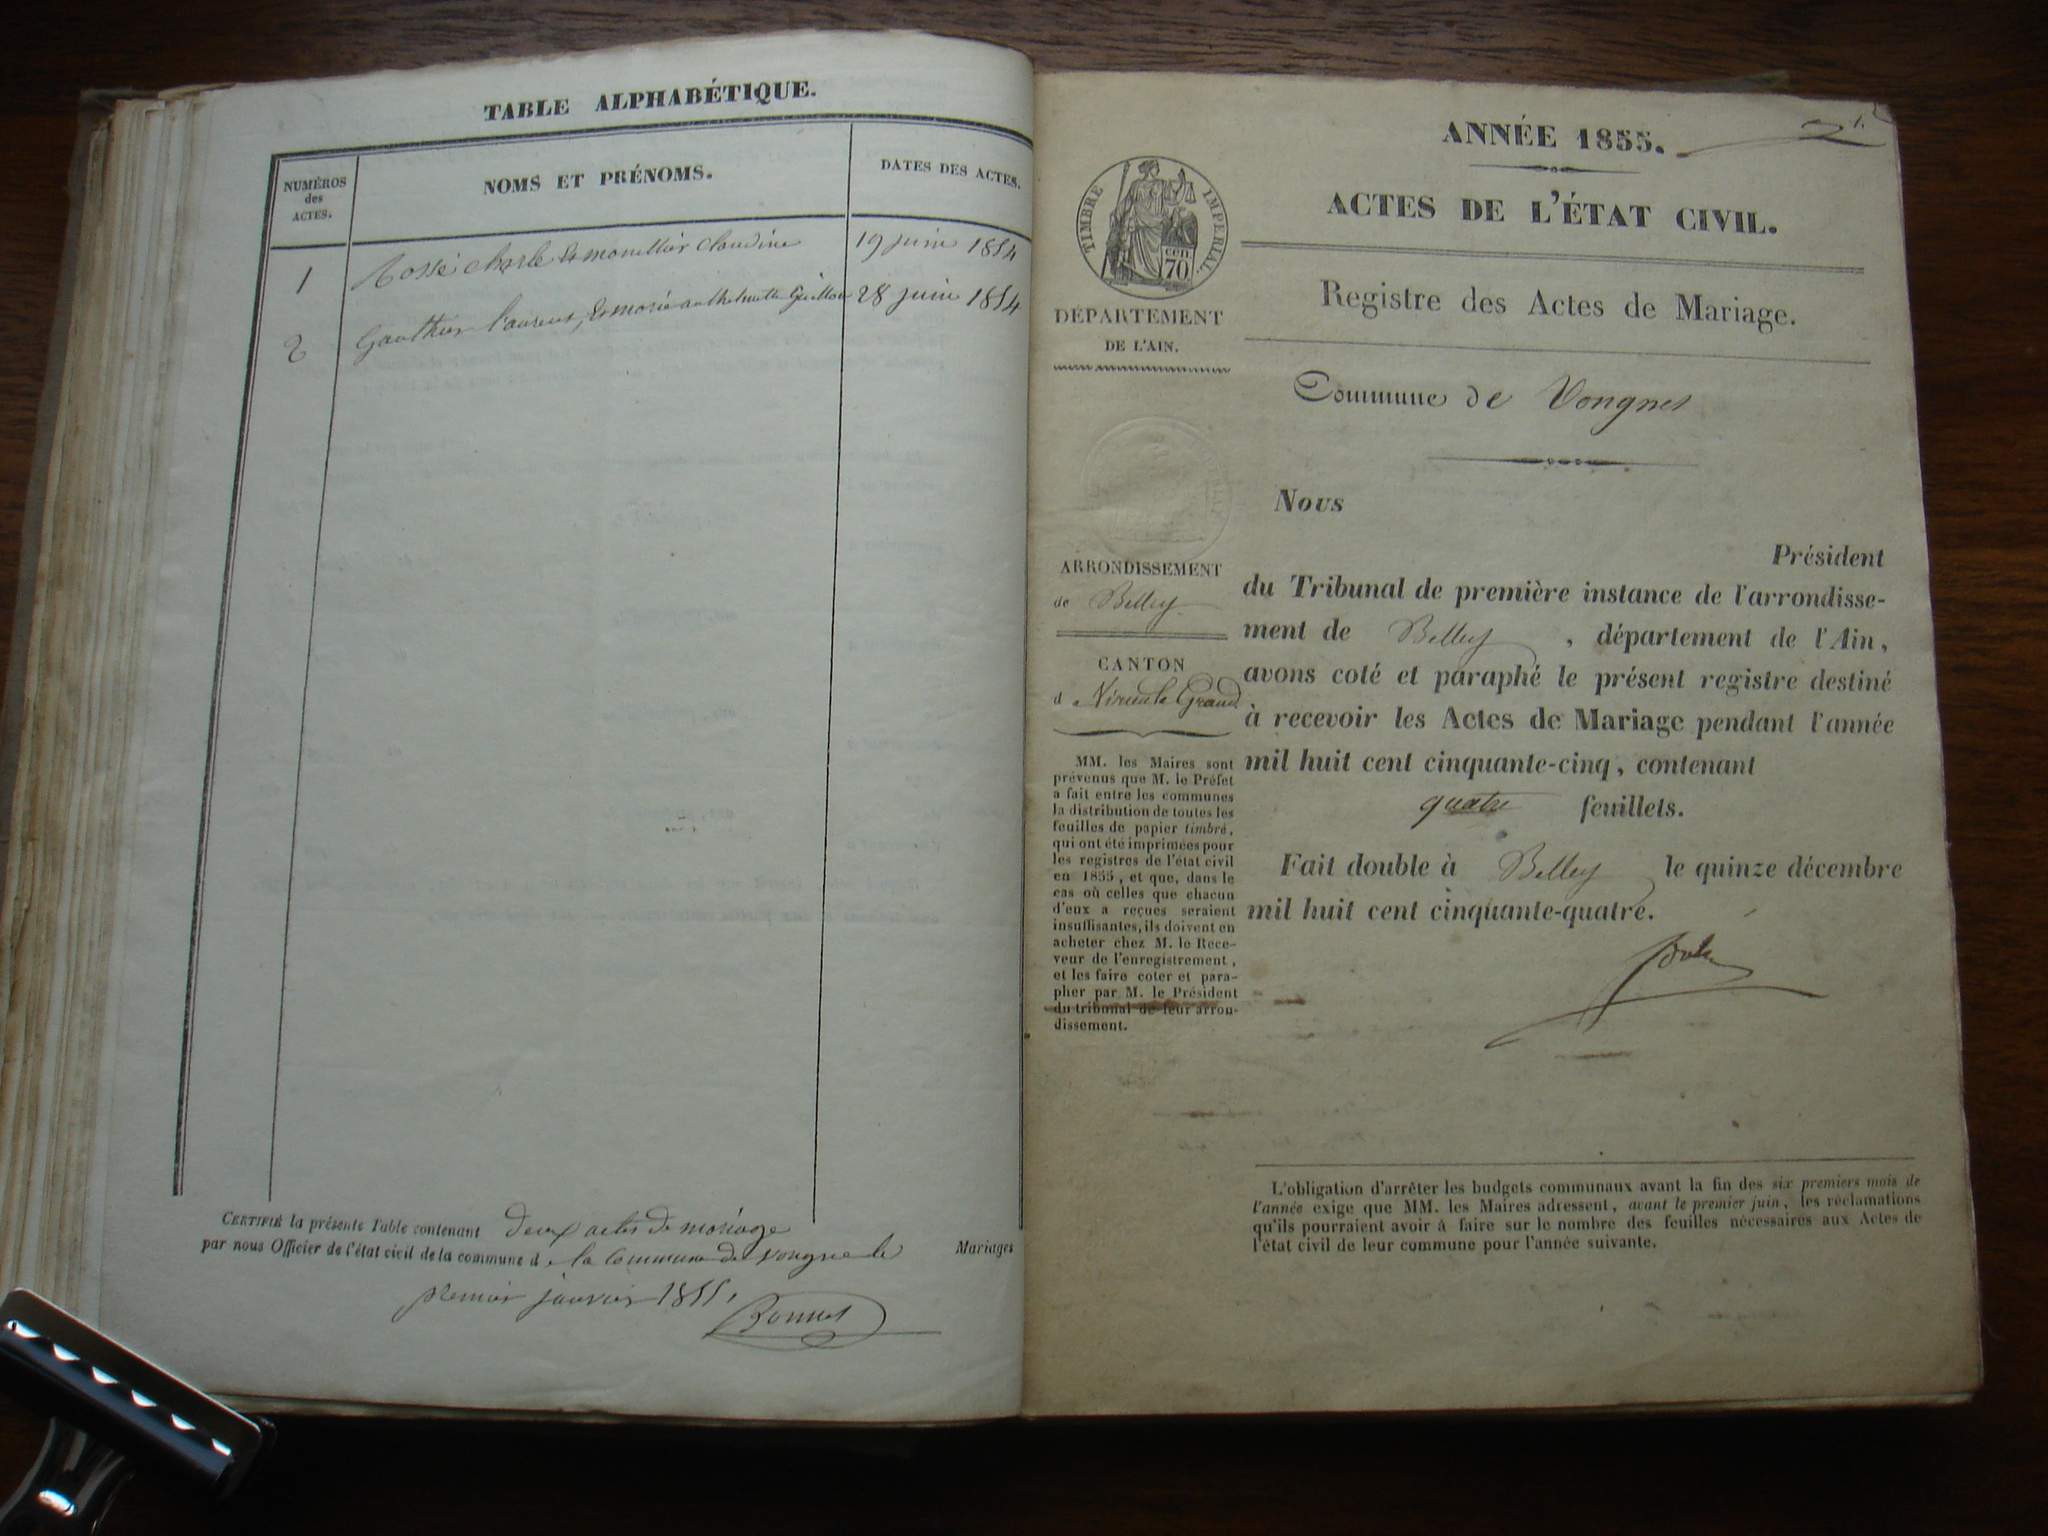 TABLE ALPHABÉTIQUE.
NUMÉROS
des
ACTES.
NOMS ET PRÉNOMS.
DATES DES ACTES.
1 Rossé charle & monellier claudine 19 juin 1854
2 Gauthier laurent, & marie anthelmette Guillon 28 juin 1854
CERTIFIÉ la présente Table contenant deux actes de mariage
par nous Officier de l'état civil de la commune d e la commune de vongne le Mariages
premier janvier 1855.
Bonnet
1.
ANNÉE 1855.
ACTES DE L'ÉTAT CIVIL.
TIMBRE IMPERIAL.
CEN.
70
Registre des Actes de Mariage.
DÉPARTEMENT
DE L'AIN.
Commune de Vongnes
Nous
Président
du Tribunal de première instance de l'arrondisse-
ment de Belley , département de l'Ain,
avons coté et paraphé le présent registre destiné
à recevoir les Actes de Mariage pendant l'année
mil huit cent cinquante-cinq, contenant
quatre feuillets.
Fait double à Belley le quinze décembre
mil huit cent cinquante-quatre.
ARRONDISSEMENT
de Belley
CANTON
d e Virieu le Grand
MM. les Maires sont
prévenus que M. le Préfet
a fait entre les communes
la distribution de toutes les
feuilles de papier timbré,
qui ont été imprimées pour
les registres de l'état civil
en 1855, et que, dans le
cas où celles que chacun
d'eux a reçues seraient
insuffisantes, ils doivent en
acheter chez M. le Rece-
veur de l'enregistrement,
et les faire coter et para-
pher par M. le Président
du tribunal de leur arron-
dissement.
L'obligation d'arrêter les budgets communaux avant la fin des six premiers mois de
l'année exige que MM. les Maires adressent, avant le premier juin, les réclamations
qu'ils pourraient avoir à faire sur le nombre des feuilles nécessaires aux Actes de
l'état civil de leur commune pour l'année suivante.